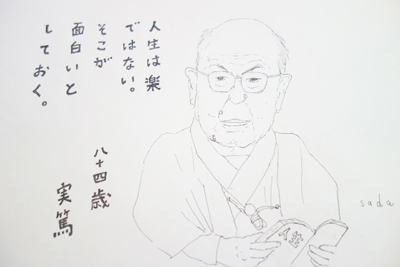 人生は楽
ではない。
そこが
面白いと
しておく。
八十四歳
実篤
sada